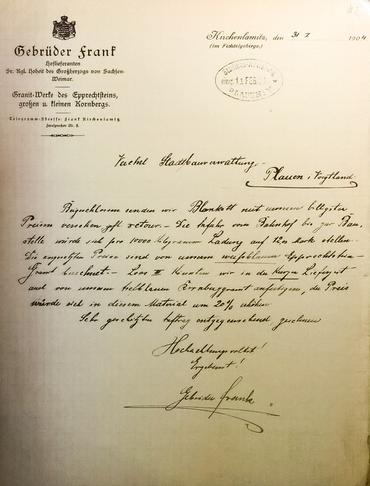 Gebrüder Frank
Hoflieferanten
Sr. Kgl. Hoheit des Großherzogs von Sachsen-
Weimar.
Granit-Werke des Epprechtsteins,
großen u. kleinen Kornbergs.
Telegramm-Adresse: Frank Kirchenlamitz.
Kirchenlamitz, den 31 X 1904
(im Fichtelgebirge.)
PLAUEN
Stadtbauverwaltung
Plauen i. Vogtland
senden wir Blankett mit unseren billigsten
Preisen versehen gefl. retour. – Die Anfuhr vom Bahnhof bis zur Bau-
stelle würde sich pro 10000 Kilogramm Ladung auf 12 Mark stellen.
Die Preise sind von unserem Epprechtstein-
Granit – Loos III könnten wir in der kurzen Lieferzeit
auch von unserem Kornberggranit anfertigen, die Preise
würde sich in diesem Material um 20% erhöhen.
Ihr geschätzten Auftrag entgegensehend zeichnen
Hochachtungsvollst!
Ergebenst!
Gebrüder Frank